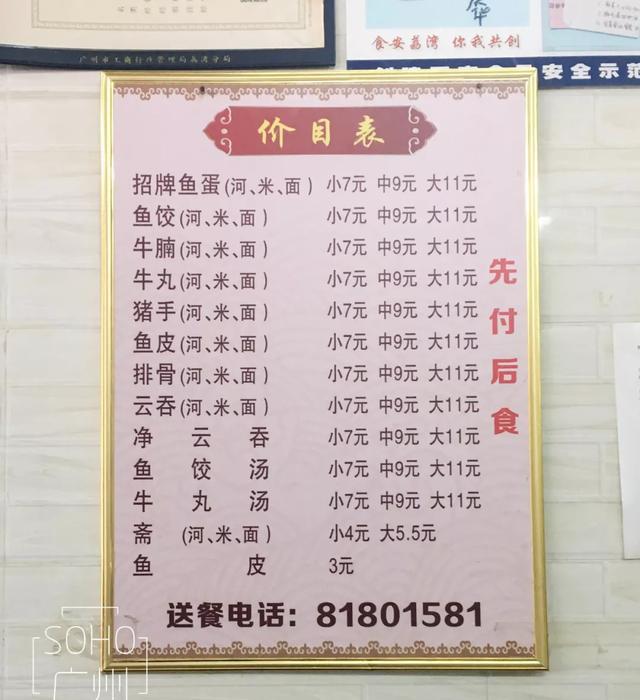 广州市工商行政管理局荔湾分局
食安荔湾 你我共创
安全示范
价目表
招牌鱼蛋(河、米、面) 小7元 中9元 大11元
鱼饺(河、米、面) 小7元 中9元 大11元
牛腩(河、米、面) 小7元 中9元 大11元
牛丸(河、米、面) 小7元 中9元 大11元
猪手(河、米、面) 小7元 中9元 大11元
鱼皮(河、米、面) 小7元 中9元 大11元
排骨(河、米、面) 小7元 中9元 大11元
云吞(河、米、面) 小7元 中9元 大11元
净云吞 小7元 中9元 大11元
鱼饺汤 小7元 中9元 大11元
牛丸汤 小7元 中9元 大11元
斋(河、米、面) 小4元 大5.5元
鱼皮 3元
先付后食
送餐电话：81801581
SOHO
广州